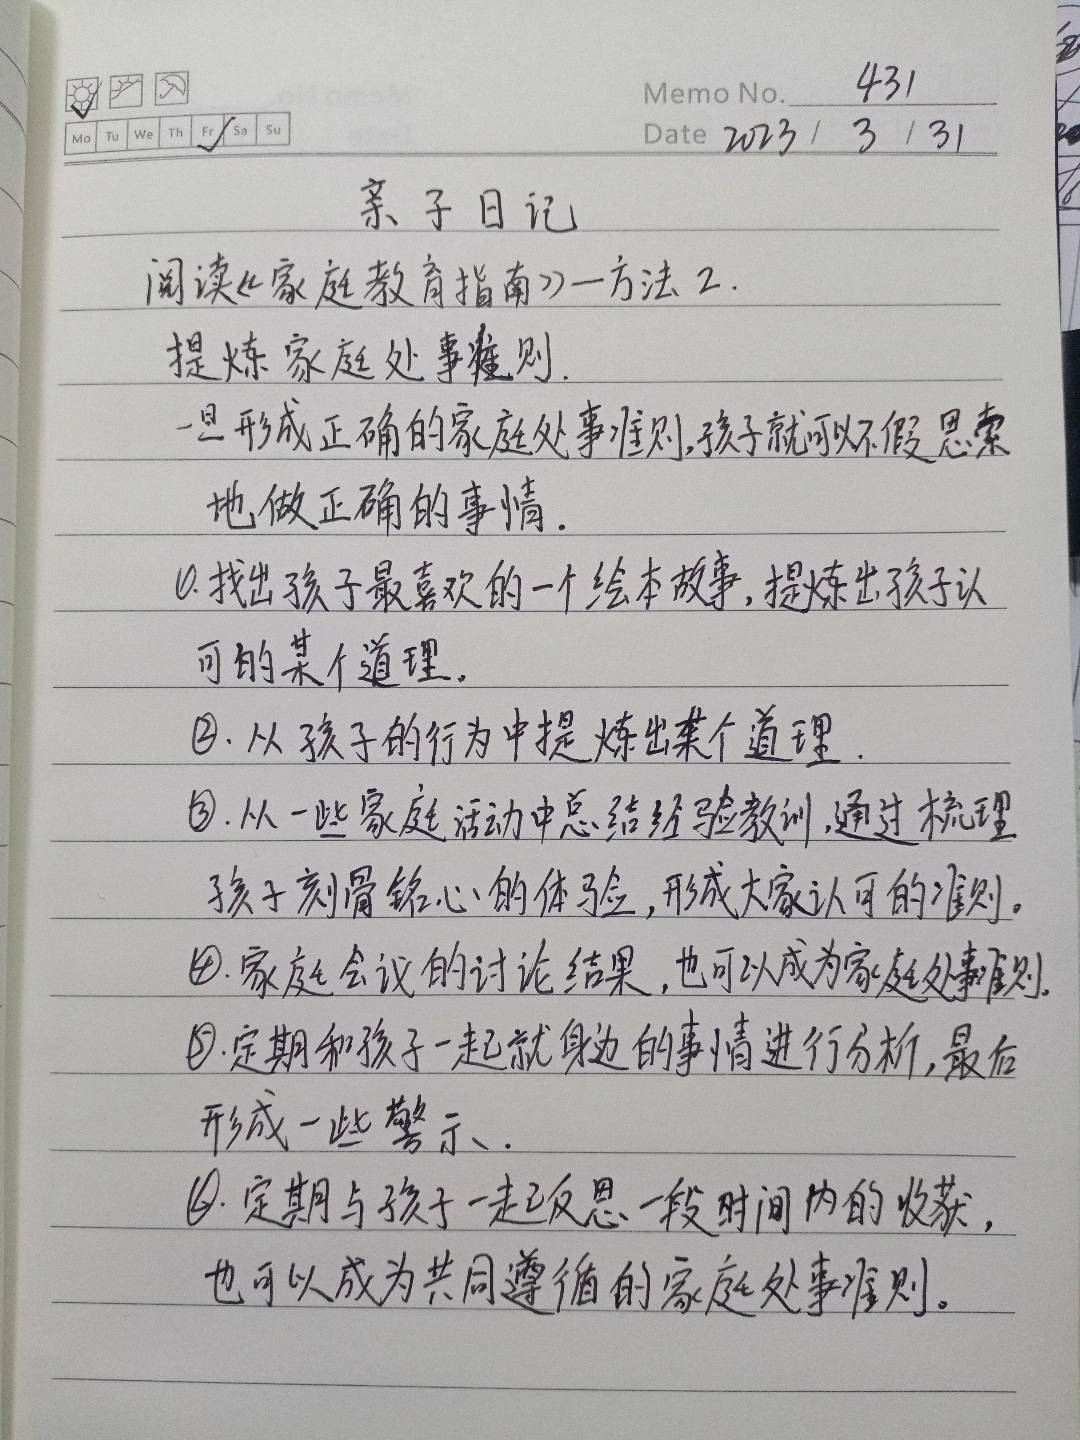 Memo No. 431
Mo Tu We Th Fr Sa Su
Date 2023 / 3 / 31
亲子日记
阅读《家庭教育指南》一方法2.
提炼家庭处事准则.
一旦形成正确的家庭处事准则,孩子就可以不假思索
地做正确的事情.
①.找出孩子最喜欢的一个绘本故事,提炼出孩子认
可的某个道理。
②.从孩子的行为中提炼出某个道理.
③.从一些家庭活动中总结经验教训,通过梳理
孩子刻骨铭心的体验,形成大家认可的准则。
④.家庭会议的讨论结果,也可以成为家庭处事准则.
⑤.定期和孩子一起就身边的事情进行分析,最后
形成一些警示、.
⑥.定期与孩子一起反思一段时间内的收获,
也可以成为共同遵循的家庭处事准则。